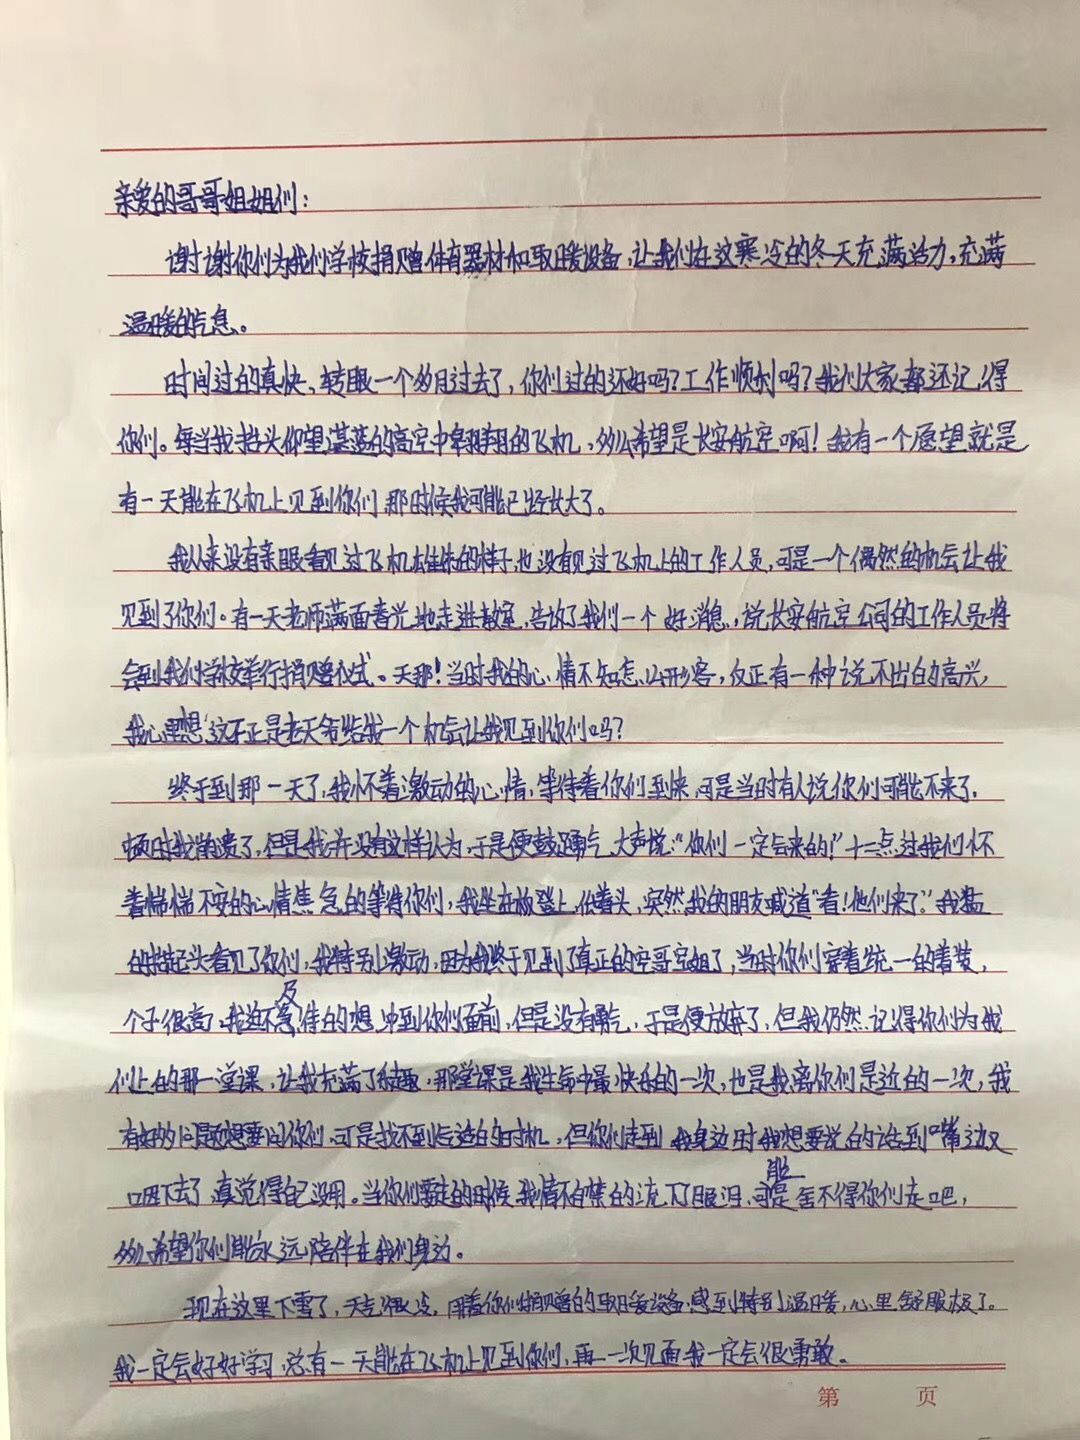 亲爱的哥哥姐姐们：
谢谢你们为我们学校捐赠体育器材和取暖设备，让我们在这寒冷的冬天充满活力，充满
温暖的气息。
时间过的真快，转眼一个多月过去了，你们过的还好吗？工作顺利吗？我们大家都还记得
你们。每当我抬头仰望湛蓝的高空中翱翔的飞机，多么希望是长安航空啊！我有一个愿望就是
有一天能在飞机上见到你们 那时候我可能已经长大了。
我从来没有亲眼看见过飞机雄伟的样子，也没有见过飞机上的工作人员，可是一个偶然的机会让我
见到了你们。有一天老师满面春光地走进教室，告诉了我们一个好消息，说长安航空公司的工作人员将
会到我们学校举行捐赠仪式。天那！当时我的心情不知怎么形容，反正有一种说不出的高兴，
我心里想这不正是老天爷给我一个机会让我见到你们吗？
终于到那一天了，我怀着激动的心情，等待着你们到快，可是当时有人说你们可能不来了，
顿时我崩溃了，但是我并没有这样认为，于是便鼓足勇气 大声说："你们一定会来的！"十二点过我们怀
着惴惴不安的心情焦急的等待你们，我坐在板登上，低着头，突然我的朋友喊道"看！他们来了。"我猛
的抬起头看见了你们，我特别激动，因为我终于见到了真正的空哥空姐了，当时你们穿着统一的着装，
个子很高，我迫不及待的想冲到你们面前，但是没有勇气，于是便放弃了，但我仍然记得你们为我
们上的那一堂课，让我充满了乐趣，那堂课是我生命中最快乐的一次，也是我离你们是近的一次，我
有好多问题想要问你们，可是找不到合适的时机，但你们走到我身边时我想要说的话到嘴边又
咽下去了 真觉得自己没用。当你们要走的时候 我情不自禁的流下了眼泪，可能是舍不得你们走吧，
多么希望你们能永远陪伴在我们身边。
现在这里下雪了，天气很冷，用着你们捐赠的取暖设备，感到特别温暖，心里舒服极了。
我一定会好好学习，总有一天能在飞机上见到你们，再一次见面我一定会很勇敢。
第 页